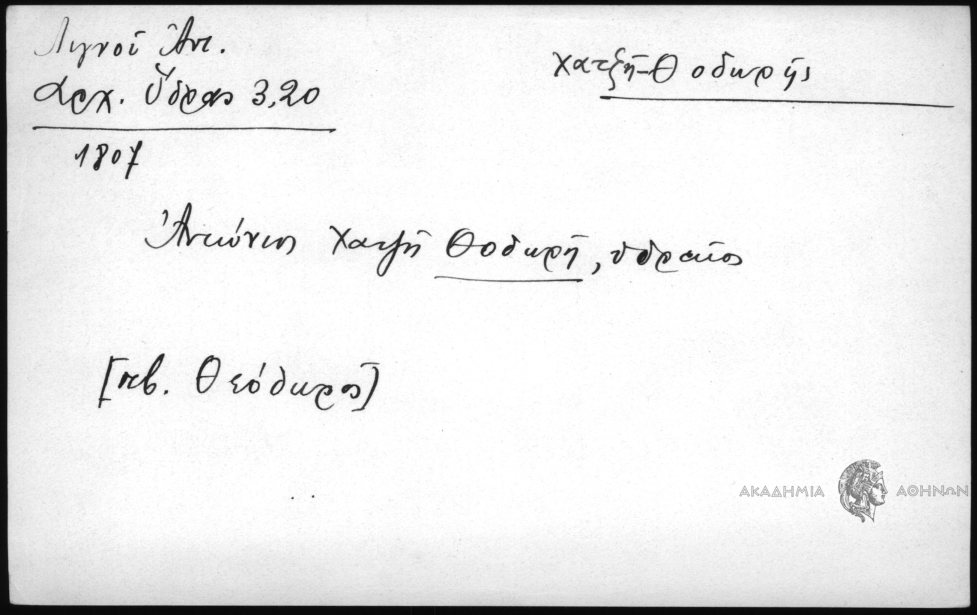 Λιγνοῦ Ἀντ.
Ἀρχ. Ὕδρας 3,20
1807
Χατζῆ-Θοδωρῆς
Ἀντώνιος Χατζῆ Θοδωρῆ, ὑδραῖος
[πβ. Θεόδωρος]
ΑΚΑΔΗΜΙΑ ΑΘΗΝΩΝ